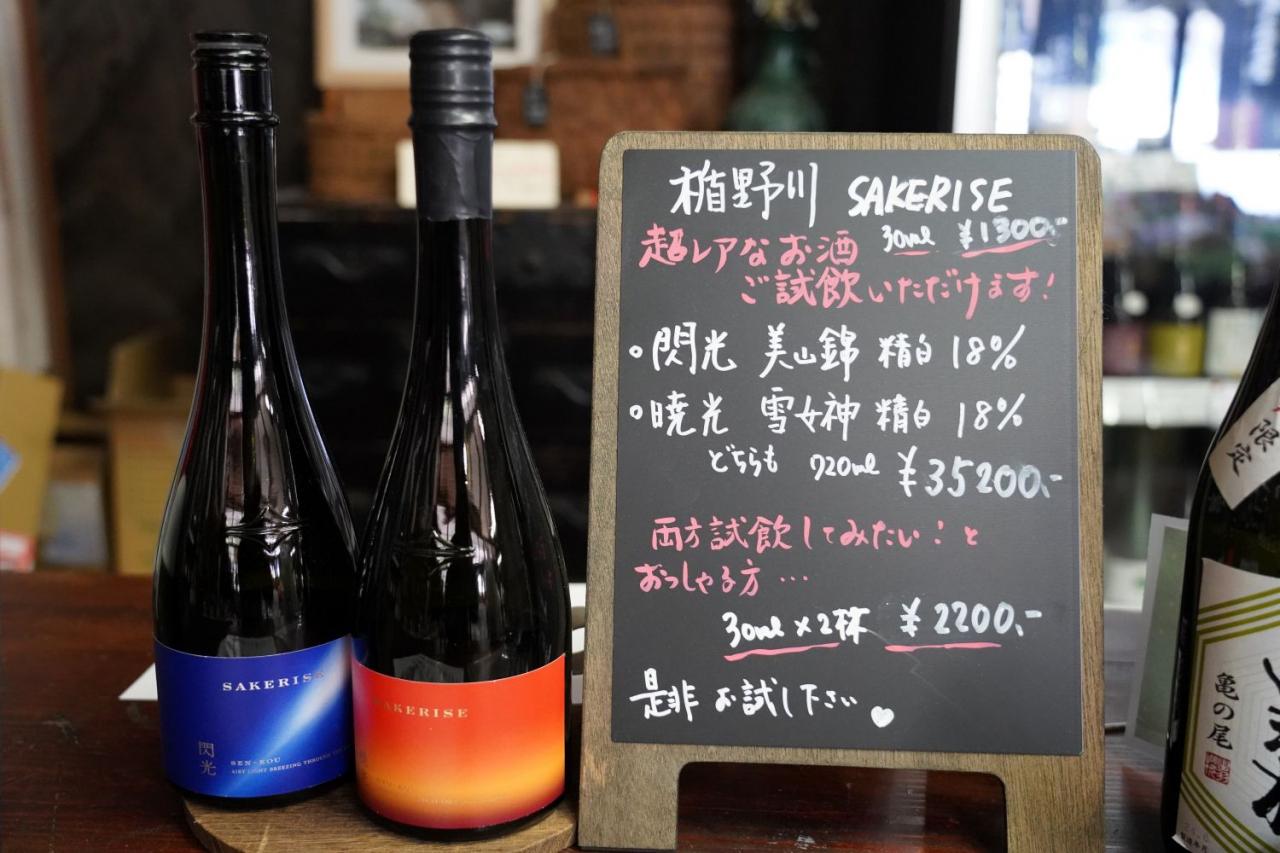 楯野川 SAKERISE
30ml ¥1300.-
超レアなお酒
ご試飲いただけます!
○閃光 美山錦 精白 18%
○暁光 雪女神 精白 18%
どちらも 720ml ¥35200.-
両方試飲してみたい!と
おっしゃる方…
30ml×2杯 ¥2200.-
是非お試し下さい
SAKERISE
閃光
SEN-KOU
AIRY LIGHT BREEZING THROUGH
SAKERISE
限定
亀の尾